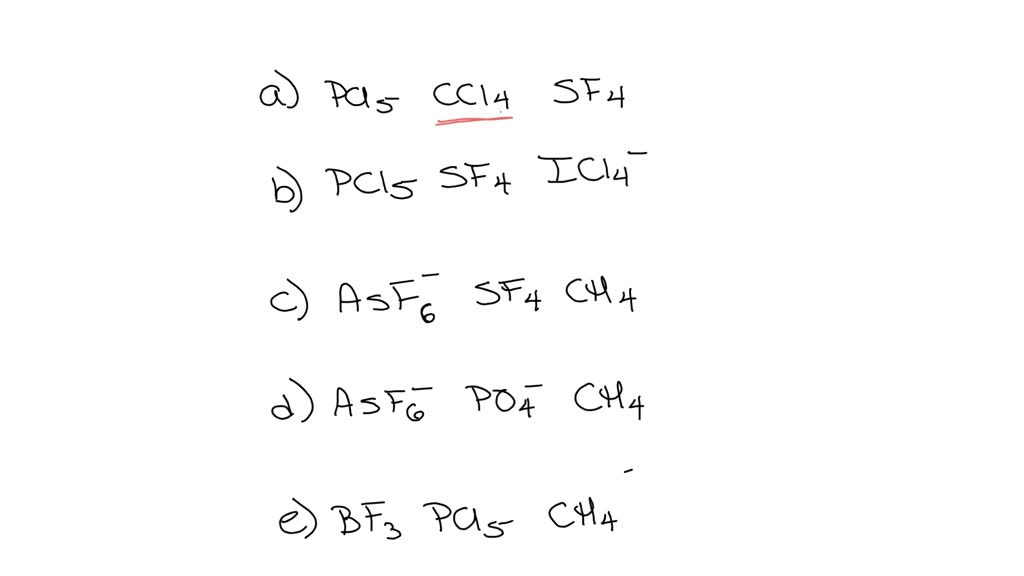 a) PCl5 CCl4 SF4
b) PCl5 SF4 ICl4-
c) AsF6- SF4 CH4
d) AsF6- PO4- CH4
e) BF3 PCl5 CH4-